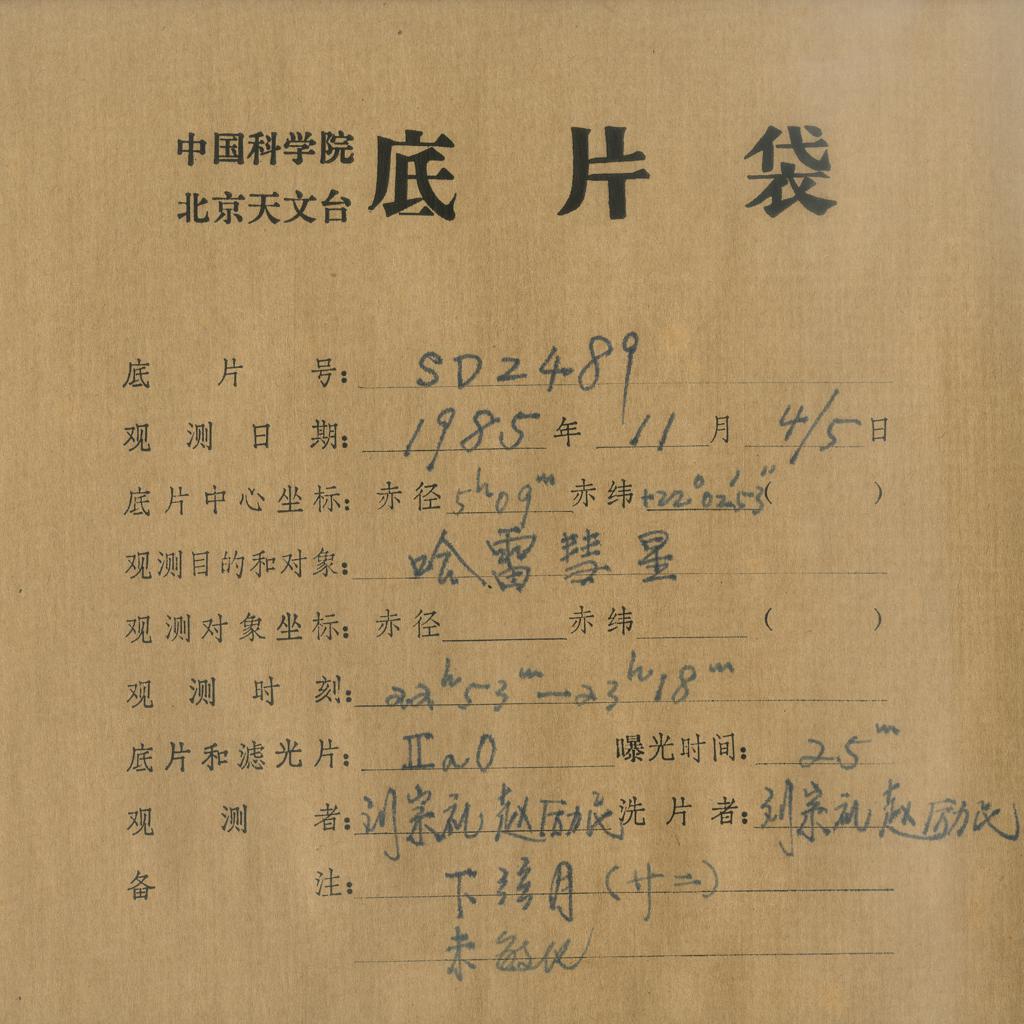 中国科学院
北京天文台
底片袋
底片号: SD2489
观测日期: 1985年 11月 4/5日
底片中心坐标: 赤径 5h09m 赤纬 +22°02′53″( )
观测目的和对象: 哈雷彗星
观测对象坐标: 赤径 赤纬 ( )
观测时刻: 22h53m—23h18m
底片和滤光片: IIaO 曝光时间: 25m
观测者: 刘宗礼 赵励民 洗片者: 刘宗礼 赵励民
备注: 下弦月(廿二)
未敏化